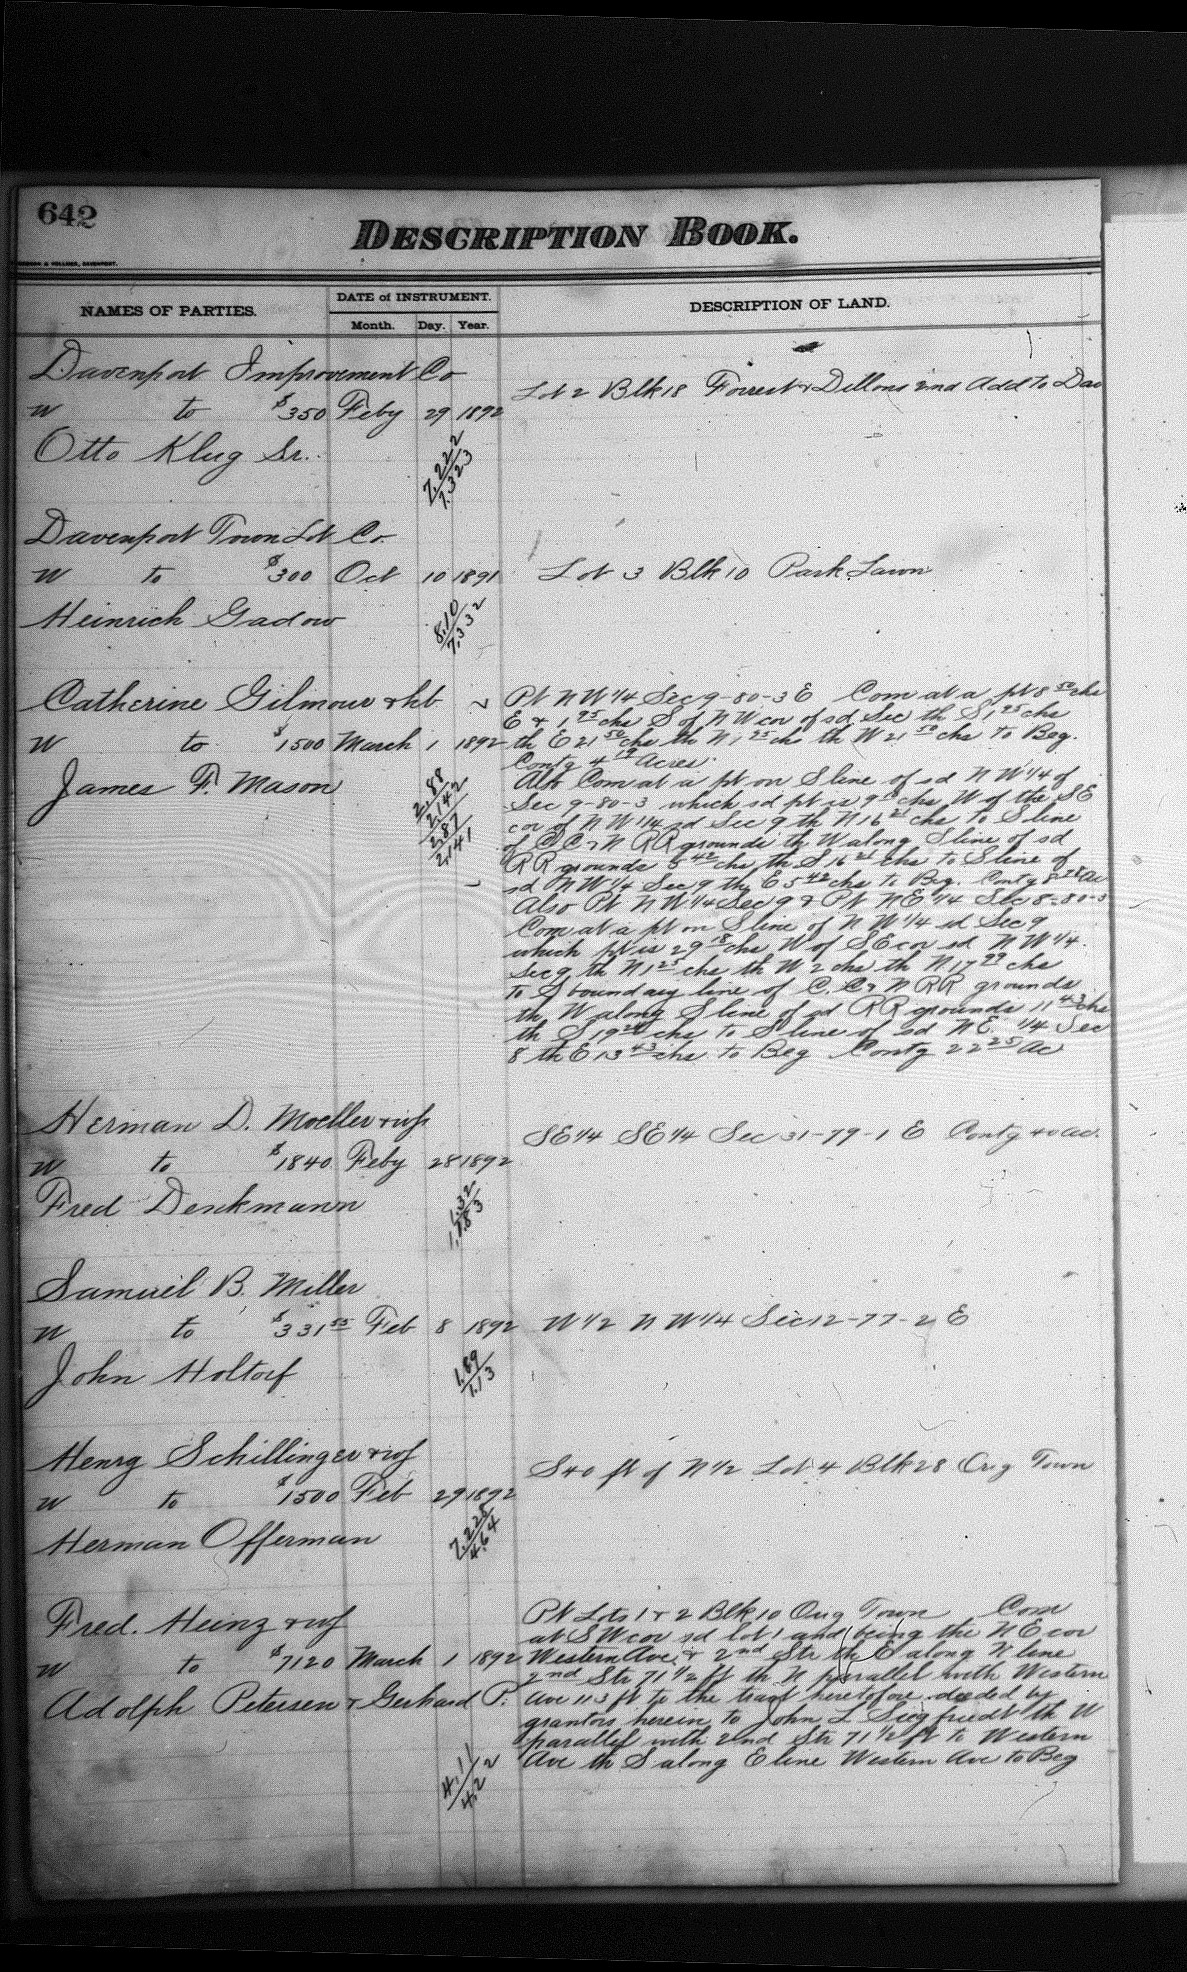 642
DESCRIPTION BOOK.
NAMES OF PARTIES.
DATE of INSTRUMENT.
Month. Day. Year.
DESCRIPTION OF LAND.
Davenport Improvement Co
W to $350 Feby 29 1892
Otto Klug Sr.
7,222
7,323
Lot 2 Blk 18 Forrest & Dillons 2nd Add to Dav
Davenport Town Lot Co.
W to $300 Oct 10 1891
Heinrich Gadow
8,10
7,332
Lot 3 Blk 10 Park Lawn
Catherine Gilmour & hb
W to $1500 March 1 1892
James F. Mason
2,88
2,142
2,87
2,141
Pt N W 1/4 Sec 9-80-3 E Com at a pt 8 50 chs
E & 1, 25 chs S of N W cor of sd Sec th S 1 25 chs
th E 21 50 chs th N 1 25 chs th W 21 50 chs to Beg.
Contg 4 19 Acres.
Also Com at a pt on S line of sd N W 1/4 of
Sec 9-80-3 which sd pt is 9 chs W of the SE
cor of N W 1/4 sd Sec 9 th N 16 chs to S line
of C, C & N RR grounds th W along S line of sd
RR grounds 5 42 chs th S 16 chs to S line of
sd N W 1/4 Sec 9 th E 5 42 chs to Beg. Contg 8 Ac
Also Pt N W 1/4 Sec 9 & Pt N E 1/4 Sec 8-80-3
Com at a pt on S line of N W 1/4 sd Sec 9
which pt is 29 18 chs W of SE cor sd N W 1/4
Sec 9 th N 1 25 chs th W 2 chs th N 17 99 chs
to S boundary line of C. C & N RR grounds
th W along S line of sd RR grounds 11 43 chs
th S 19 24 chs to S line of sd N E. 1/4 Sec
8 th E 13 43 chs to Beg Contg 22 25 Ac
Herman D. Moeller & wf
W to $1840 Feby 28 1892
Fred Denkmann
1,32
1,183
SE 1/4 SE 1/4 Sec 31-79-1 E Contg 40 ac.
Samuel B. Miller
W to $331 55 Feb 8 1892
John Holtorf
1,89
1,13
W 1/2 N W 1/4 Sec 12-77-2 E
Henry Schillinger & wf
W to $1500 Feb 29 1892
Herman Offerman
7,228
4,64
S 40 ft of N 1/2 Lot 4 Blk 28 Orig Town
Fred. Heinz & wf
W to $7120 March 1 1892
Adolph Petersen & Gerhard P.
4,11
4,22
Pt Lots 1 & 2 Blk 10 Orig Town Com
at S W cor sd lot 1 and being the N E cor
Western Ave, & 2nd Str th E along N line
2nd Str 71 1/2 ft th N parallel with Western
Ave 113 ft to the tract heretofore deeded by
grantors herein to John L Siegfriedt th W
parallel with 2nd Str 71 1/2 ft to Western
Ave th S along E line Western Ave to Beg